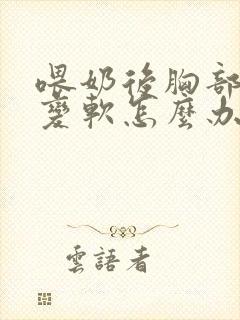 喂奶後胸部
變軟怎麼办
雲語者